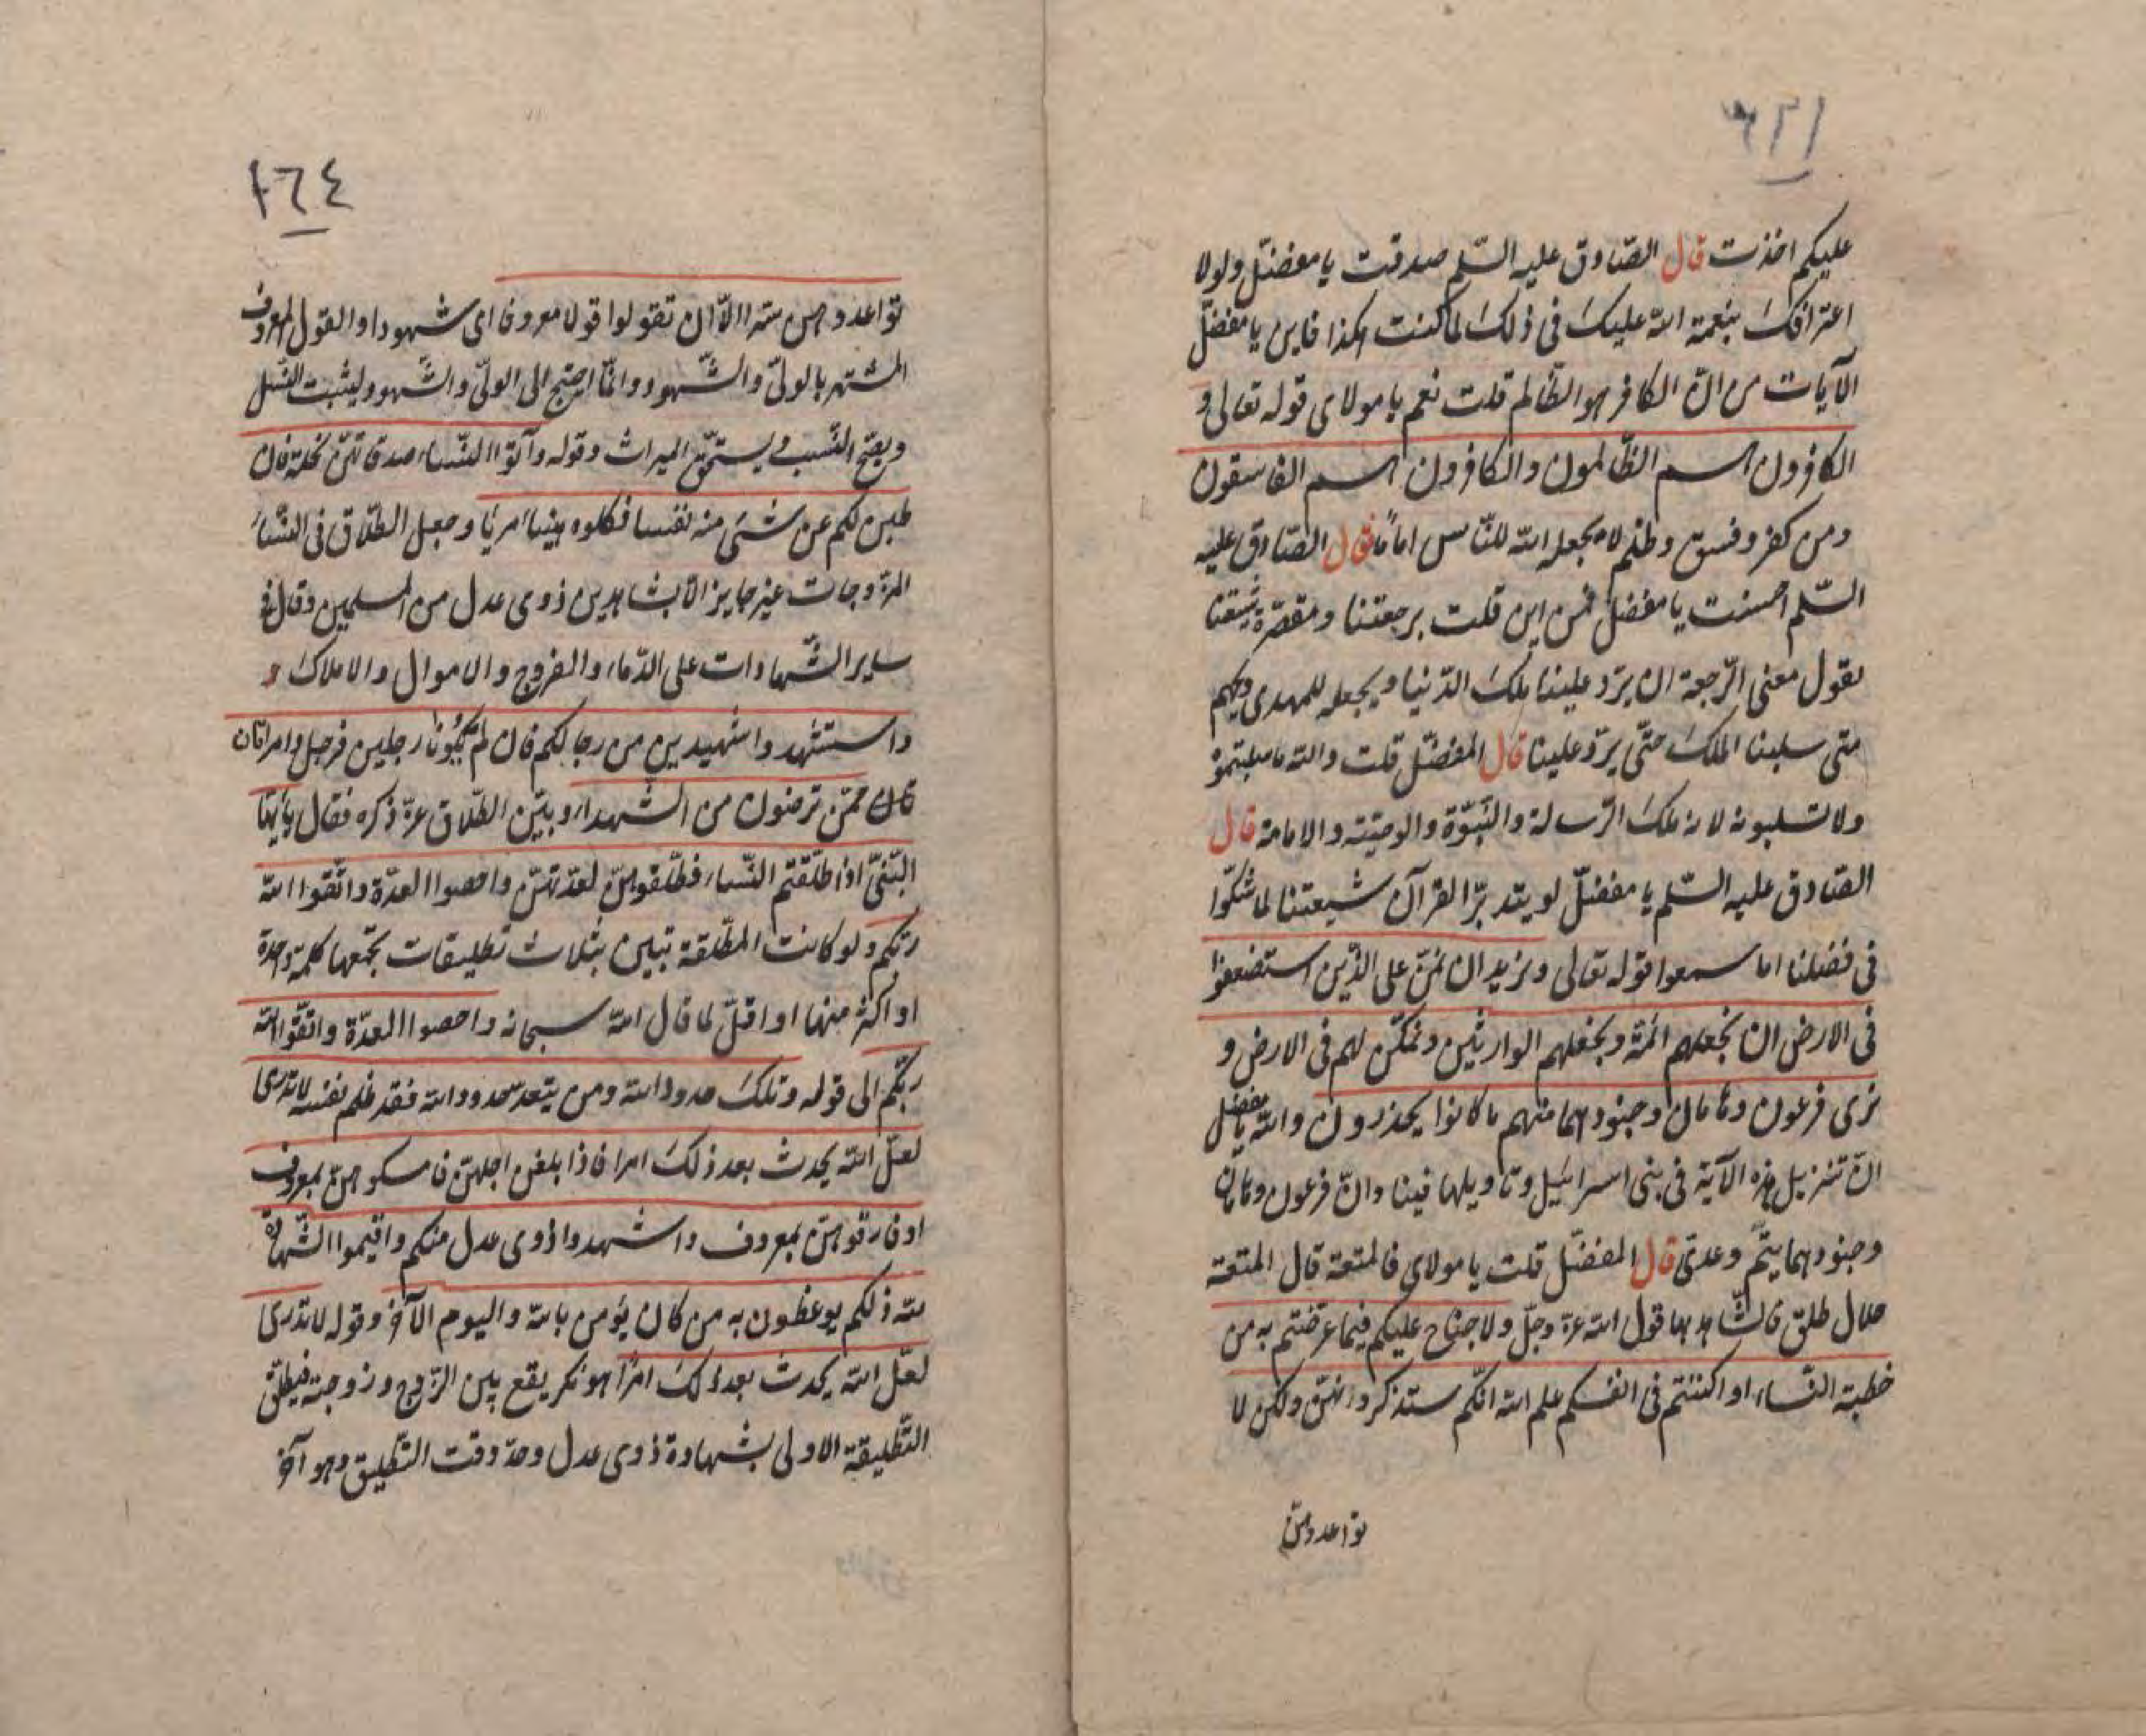 عليكم اخذت قال الصّادق عليه السّلم صدقت يا مفضّل ولولا
اعترافك بنعمة الله عليك في ذلك لما كنت هكذا فاين يا مفضّل
الآيات من انّ الكافر هو الظّالم قلت نعم يا مولاى قوله تعالى و
الكافرون هم الظّالمون والكافرون هم الفاسقون
ومن كفر وفسق وظلم لا يجعله الله للنّاس اماماً فقال الصّادق عليه
السّلم احسنت يا مفضل فمن اين قلت برجعتنا ومقصّرة شيعتنا
تقول معنى الرّجعة ان يردّ علينا ملك الدّنيا ويجعله للمهدى ويحهم
متى سلبنا الملك حتّى يردّ علينا قال المفضّل قلت والله ما سلبتموه
ولا تسلبونه لانه ملك الرّسالة والنّبوّة والوصيّة والامامة قال
الصّادق عليه السّلم يا مفضّل لو يتدبرّ القرآن شيعتنا لما شكّوا
في فضلنا اما سمعوا قوله تعالى ونريد ان نمنّ على الذين استضعفوا
في الارض ان نجعلهم ائمة ونجعلهم الوارثين ونمكّن لهم فى الارض و
نرى فرعون وهامان وجنودهما منهم ما كانوا يحذرون والله يا مفضل
انّ تنزيل هذه الآية فى بنى اسرائيل وتاويلها فينا وانّ فرعون وهامان
وجنودهما يتّم وعدىّ قال المفضّل قلت يا مولاى فالمتعة قال المتعة
حلال طلق فالشّاهد بها قول الله عزّ وجلّ ولا جناح عليكم فيما عرّضتم به من
خطبة النّساء او اكننتم فى انفسكم علم الله انّكم ستذكرونهنّ ولكن لا
تواعدوهنّ
١٦٤
تواعدوهن سرا الاّ ان تقولوا قولا معروفا اى شهودا والقول المعروف
المشتهر بالولىّ والشّهود وانّما احتج الى الولىّ والشّهود ليثبت النّسل
ويصّح النّسب ويستحّق الميراث وقوله وآتوا النّساء صدقاتهنّ نحلة فان
طبن لكم عن شئ منه نفسا فكلوه هنيئا مريّا وجعل الطّلاق فى النّساء
المزّوجات غير جايز الاّ بشاهدين ذوى عدل من المسلمين وقال فى
ساير الشّهادات على الدّماء والفروج والاموال والاملاك و
واستشهدوا شهيدين من رجالكم فان لم يكونا رجلين فرجل وامراتان
ممّن ترضون من الشّهداء وبيّن الطّلاق عزّ ذكره فقال يا ايّها
النّبىّ اذا طلّقتم النّساء فطلّقوهنّ لعدّتهنّ واحصوا العدّة واتّقوا الله
ربّكم ولو كانت المطّلقة تبين بثلاث تطليقات تجمعها كلمة واحدة
او اكثر منها او اقلّ لما قال الله سبحانه واحصوا العدّة واتّقوا الله
ربّكم الى قوله وتلك حدود الله ومن يتعد حدود الله فقد ظلم نفسه لا تدرى
لعلّ الله يحدث بعد ذلك امرا فاذا بلغن اجلهنّ فامسكوهنّ بمعروف
او فارقوهنّ بمعروف واشهدوا ذوى عدل منكم واقيموا الشّهادة
لله ذلكم يوعظون به من كان يؤمن بالله واليوم الآخر وقوله لا تدرى
لعلّ الله يحدث بعد ذلك امرًا هو نكر يقع بين الزّوج وزوجته فيطلّق
التّطليقة الاولى بشهادة ذوى عدل وحدّ وقت التّطليق وهو آخر